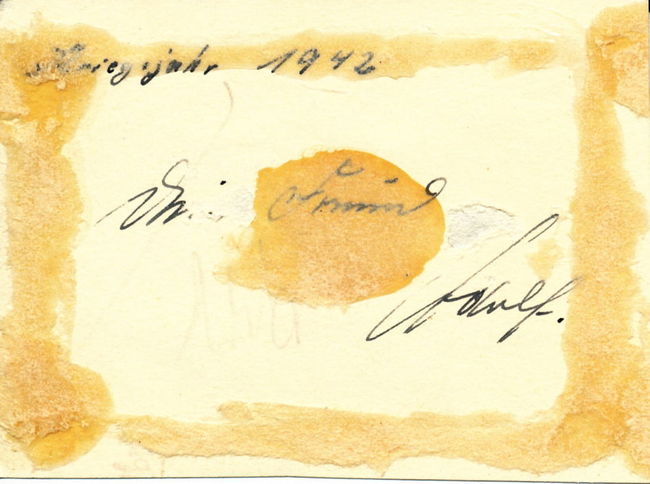 Kriegsjahr 1942
Dein Freund
Adolf.